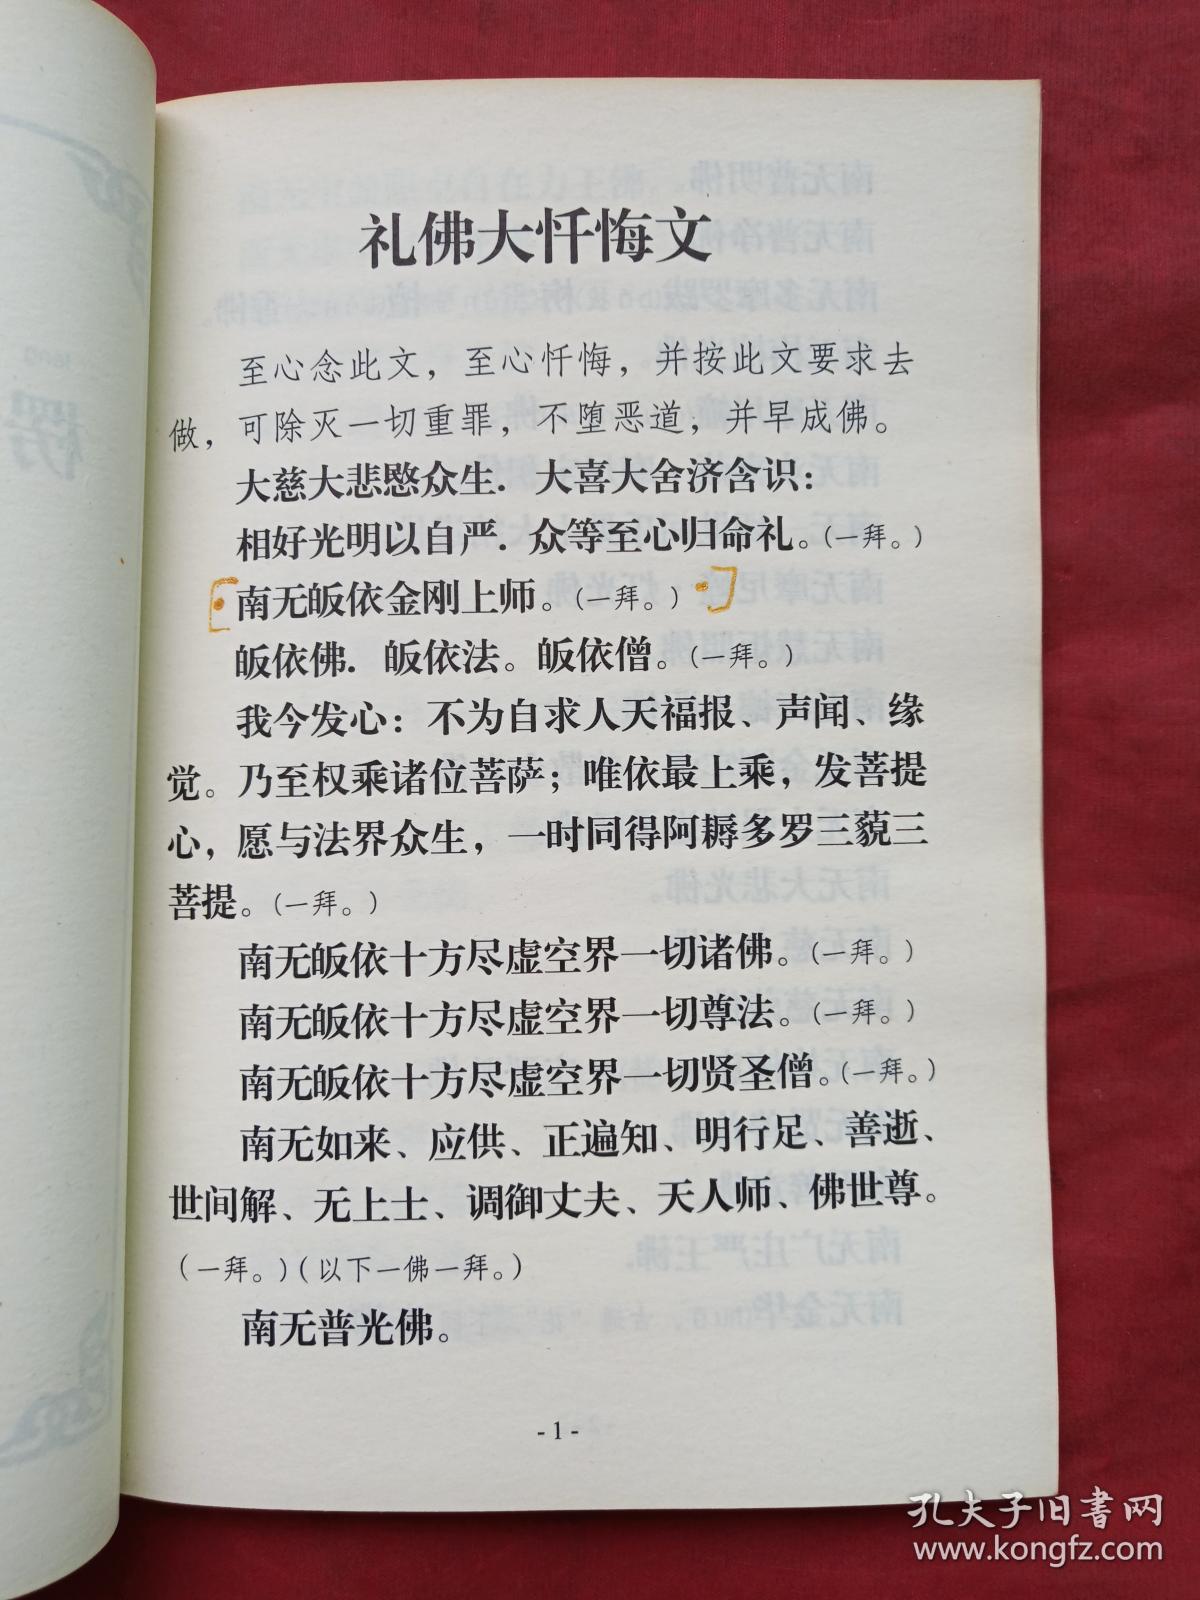 礼佛大忏悔文
至心念此文，至心忏悔，并按此文要求去
做，可除灭一切重罪，不堕恶道，并早成佛。
大慈大悲愍众生．大喜大舍济含识：
相好光明以自严．众等至心归命礼。（一拜。）
南无皈依金刚上师。（一拜。）
皈依佛．皈依法。皈依僧。（一拜。）
我今发心：不为自求人天福报、声闻、缘
觉。乃至权乘诸位菩萨；唯依最上乘，发菩提
心，愿与法界众生，一时同得阿耨多罗三藐三
菩提。（一拜。）
南无皈依十方尽虚空界一切诸佛。（一拜。）
南无皈依十方尽虚空界一切尊法。（一拜。）
南无皈依十方尽虚空界一切贤圣僧。（一拜。）
南无如来、应供、正遍知、明行足、善逝、
世间解、无上士、调御丈夫、天人师、佛世尊。
（一拜。）（以下一佛一拜。）
南无普光佛。
- 1 -
孔夫子旧书网
www.kongfz.com